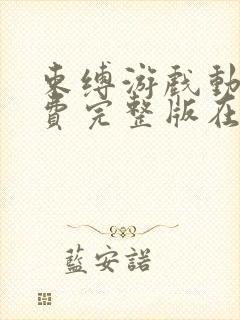 束缚游戏动
费完整版在
藍安諾